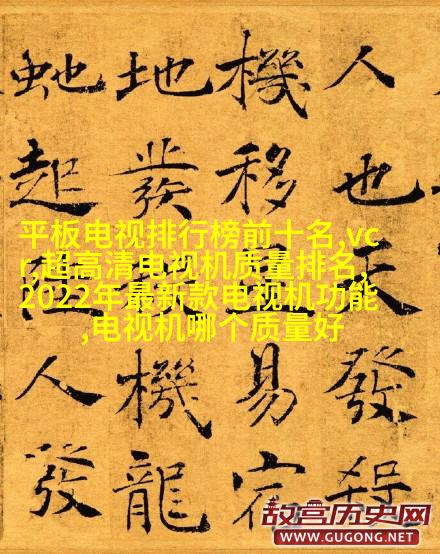 人也天發殺
機移星易宿
地發機龍
虵起人發
平板电视排行榜前十名,vc
r,超高清电视机质量排名,
2022年最新款电视机功能
,电视机哪个质量好
故宫历史网
WWW.GUGONG.NET